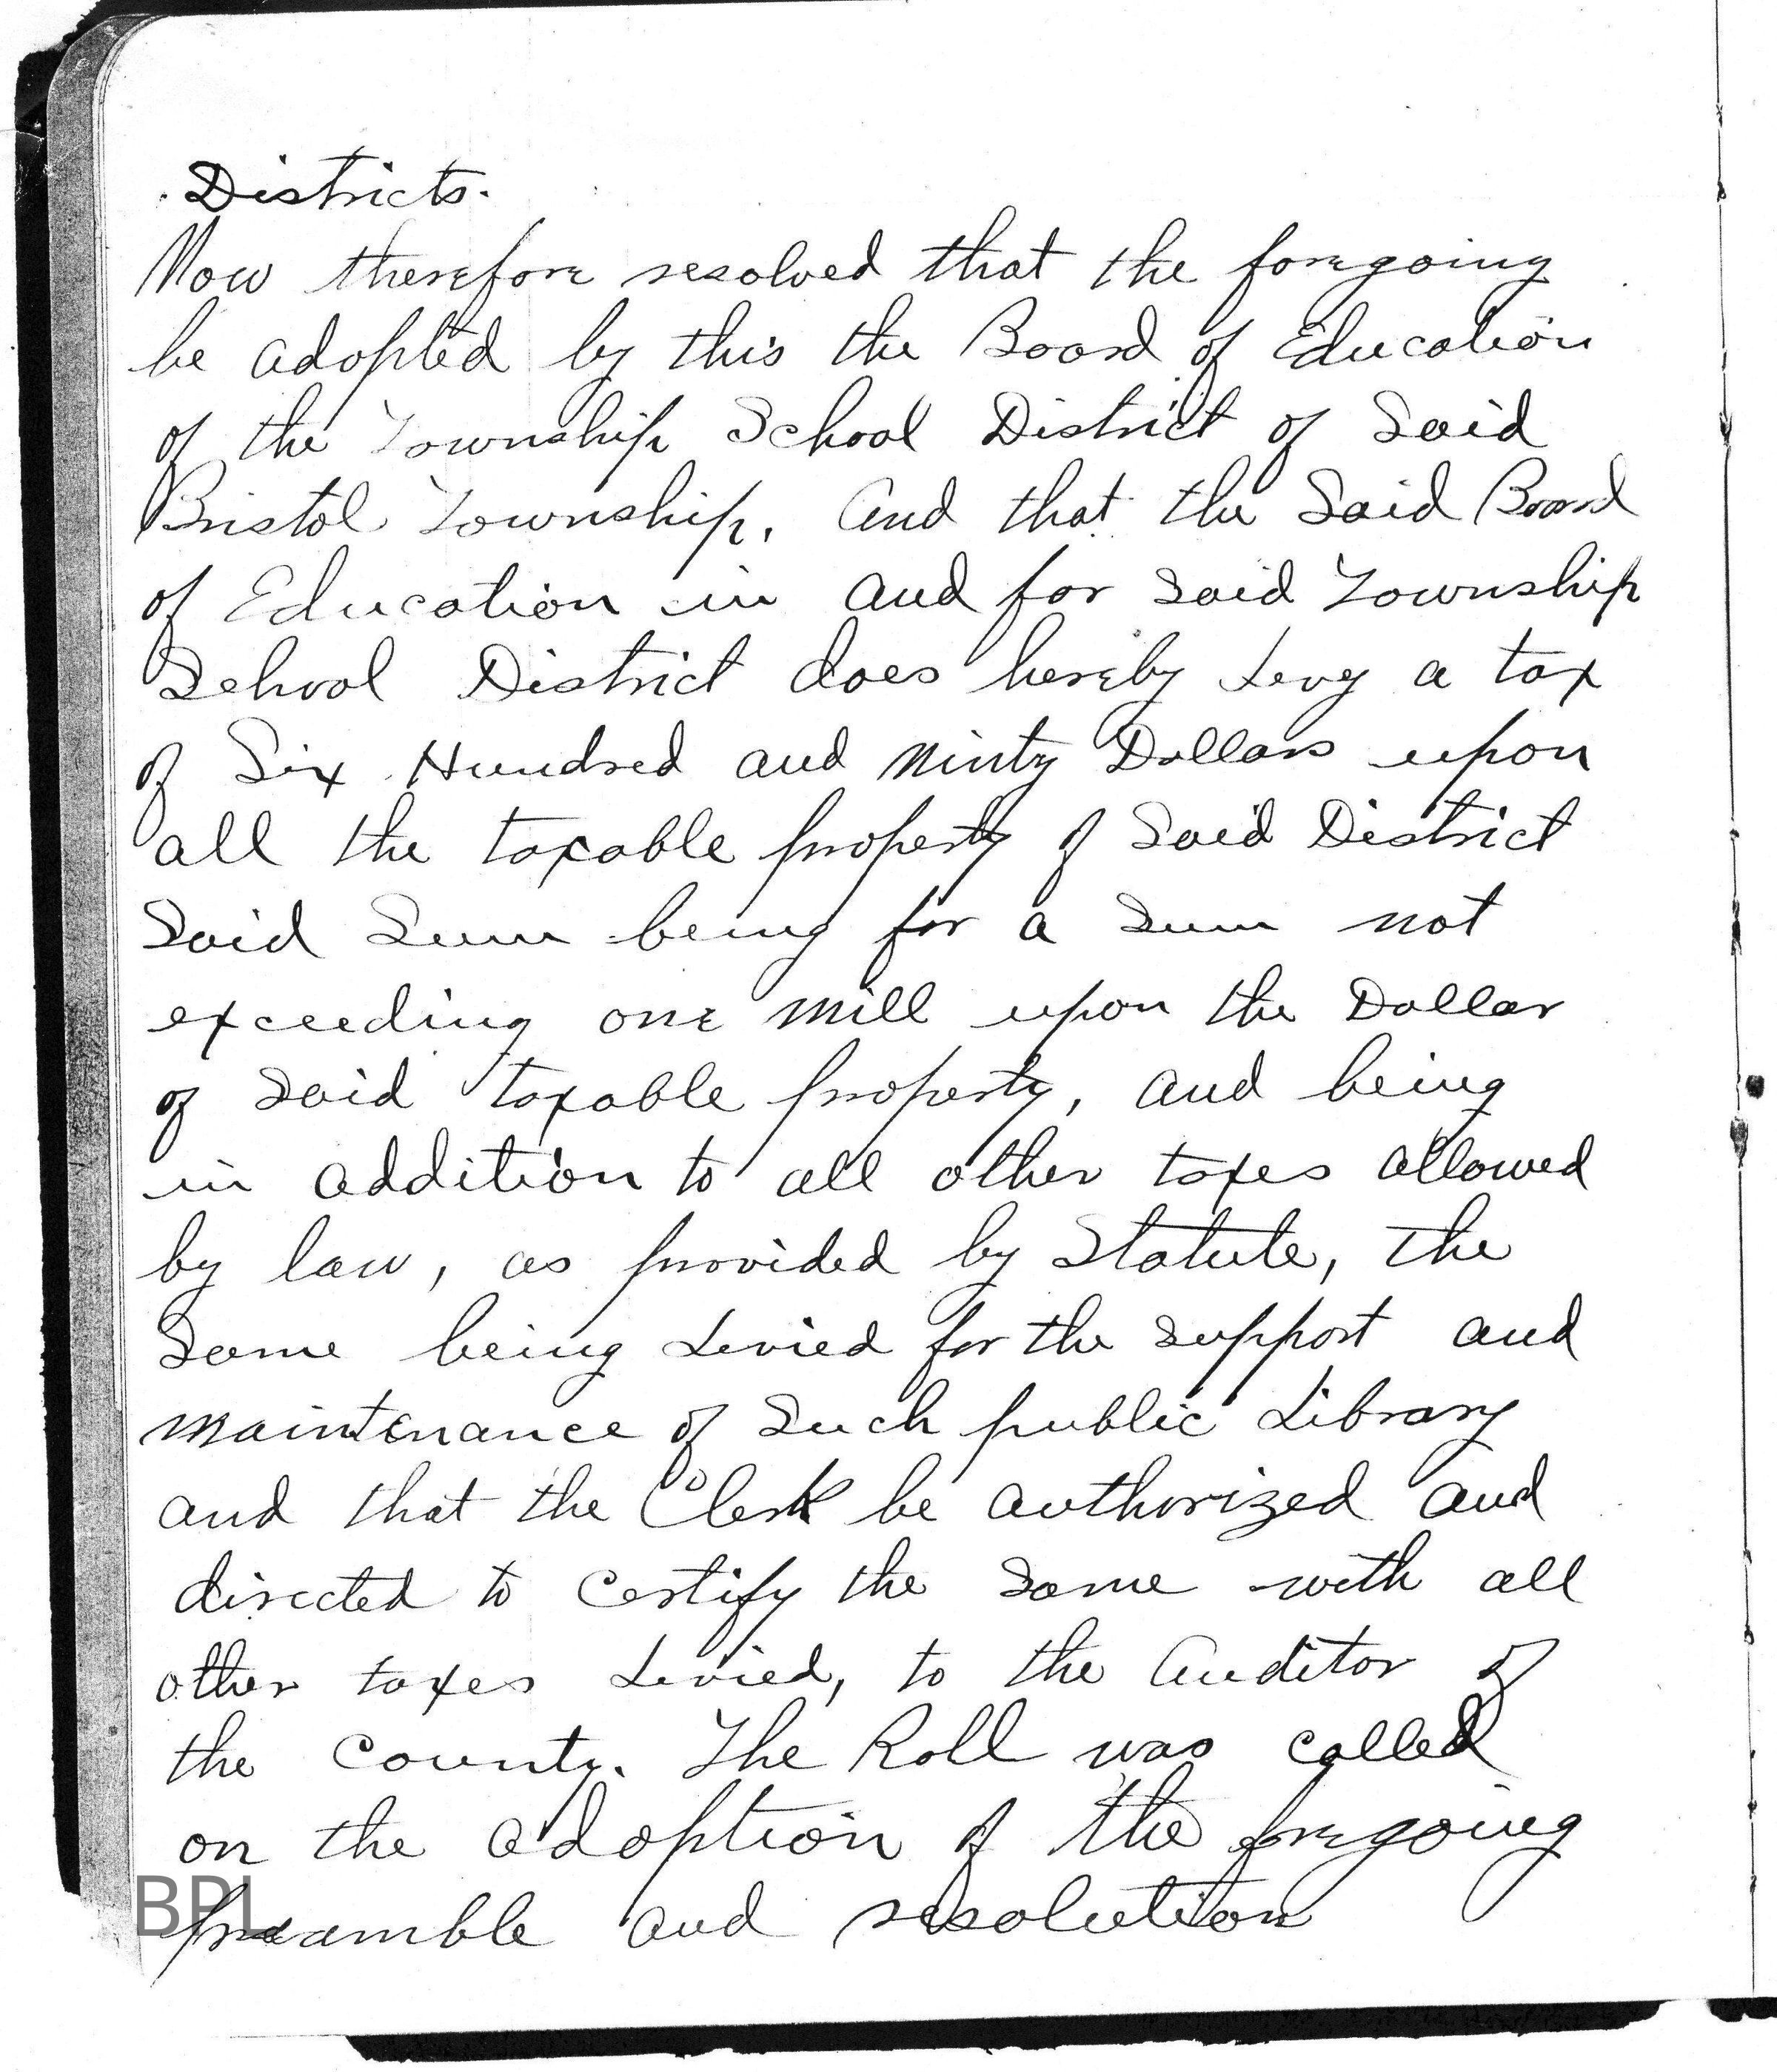 Districts.
Now therefore resolved that the foregoing
be adopted by this the Board of Education
of the Township School District of Said
Bristol Township. And that the Said Board
of Education in and for Said Township
School District does hereby Levy a tax
of Six Hundred and Ninty Dollars upon
all the taxable property of Said District
Said Sum being for a Sum not
exceeding one Mill upon the Dollar
of Said taxable property, and being
in addition to all other taxes allowed
by law, as provided by Statute, the
Same being Levied for the Support and
Maintenance of Such public Library
and that the Clerk be authorized and
directed to Certify the Same with all
other taxes Levied, to the Auditor of
the County. The Roll was called
on the adoption of the foregoing
BPL
preamble and resolution